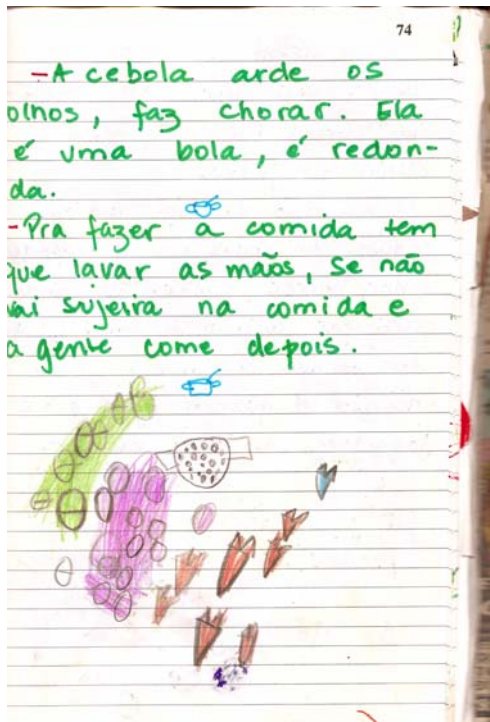 74
-A cebola arde os
olhos, faz chorar. Ela
é uma bola, é redon-
da.
-Pra fazer a comida tem
que lavar as mãos, se não
vai sujeira na comida e
a gente come depois.